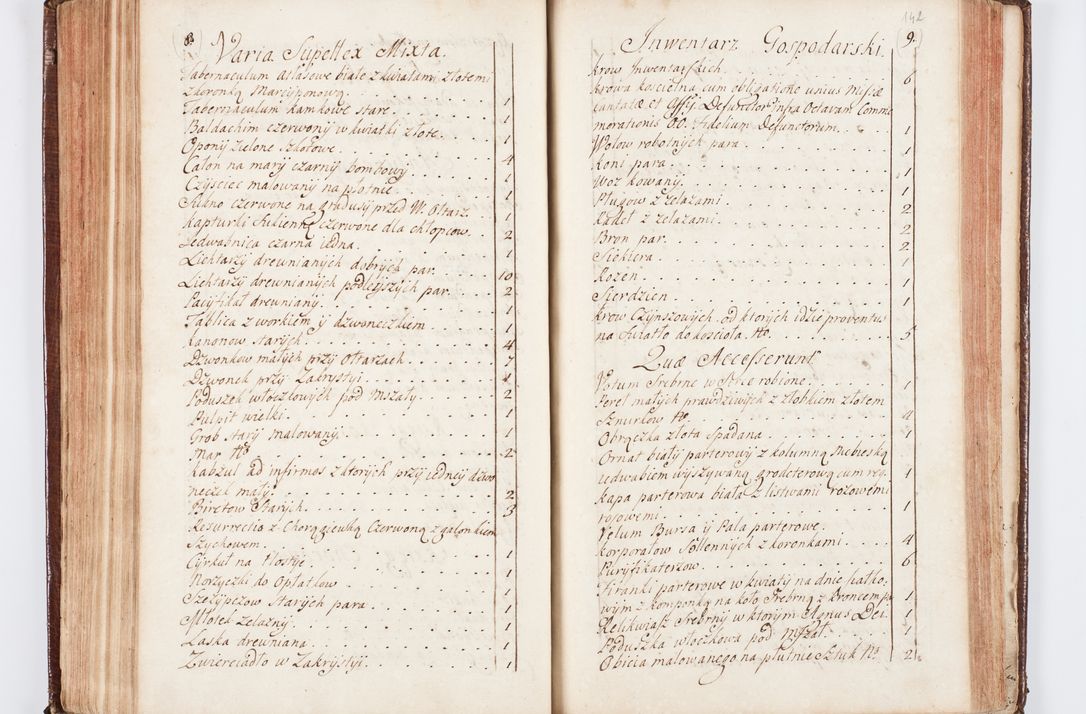 8.
Varia Supellex Mixta.
Tabernaculum atłasowe białe z kwiatami złotemi
z koronką Marcyponową . . . 1
Tabernaculum kamkowe stare . . . 1
Baldachim czerwony w kwiatki złote . . . 1
Opony zielone szkotowe . . . 4
Całon na mary czarny bombowy . . . 1
Czyściec malowany na płotnie . . . 1
Sukno czerwone na gradusy przed W. Ołtarz . 1
Kapturki Sukienne czerwone dla chłopcow . . 2
Jedwabnica czarna iedna . . . 1
Lichtarzy drewnianych dobrych par . . . 10
Lichtarzy drewnianych podleyszych par . . . 2
Pacyfikał drewniany . . . 1
Tablica z workiem y dzwoneczkiem . . . 1
Kanonow starych . . . 4
Dzwonkow małych przy Ołtarzach . . . 7
Dzwonek przy Zakrystyi . . . 1
Poduszek włoczkowych pod mszały . . . 2
Pulpit wielki . . . 1
Grob stary malowany . . . 1
Mar No . . . 2
Kabzul ad infirmos z ktorych przy iedney dzwo
neczek mały . . . 2
Biretow Starych . . . 3
Resurrectio z Chorągiewką Czerwoną z galonkiem
Szychowem . . . 1
Cyrkuł na Hostye . . . 1
Norzyczki do Opłatkow . . . 1
Szczypczow Starych para . . . 1
Młotek żelazny . . . 1
Laska drewniana . . . 1
Zwierciadło w Zakrystyi . . . 1
142
9.
Inwentarz Gospodarski.
Krow Inwentarskich . . . 6
Krowa koscielna cum obligatione unius Missæ
cantatæ et Offi. Defunctor. infra Octavam Comme
morationis OO. Fidelium Defunctorum . . . 1
Wołow robotnych para . . . 1
Koni para . . . 1
Woz kowany . . . 1
Pługow z żelazami . . . 2
Radeł z żelazami . . . 2
Bron par . . . 2
Siekiera . . . 1
Rożen . . . 1
Sierdzien . . . 1
Krow Czynszowych, od ktorych idzie proventus
na Swiatło do koscioła No . . . 5
Quæ Accesserunt
Votum Srebrne w robione . . . 1
Pereł małych prawdziwych z złobkiem złotem
Sznurkow No . . . 4
Obrączka złota Spadana . . . 1
Ornat biały parterowy z kolumną niebieską
iedwabiem wyszywaną grodeterową cum req. 1
Kapa parterowa biała z listwami rożowemi
rysowemi . . . 1
Velum Bursa y Pala parterowe . . .
Korporałow Sollennych z koronkami . . . 4
Puryfikaterzow . . . 6
Firanki parterowe w kwiaty na dnie białko-
wym z kamponką na koło Srebrną z Kroncem p. 1
Relikwiasz Srebrny w ktorym Agnus Dei . . 1
Poduszka włoczkowa pod Mszał . . . 1
Obicia malowanego na płutnie Sztuk No . 2